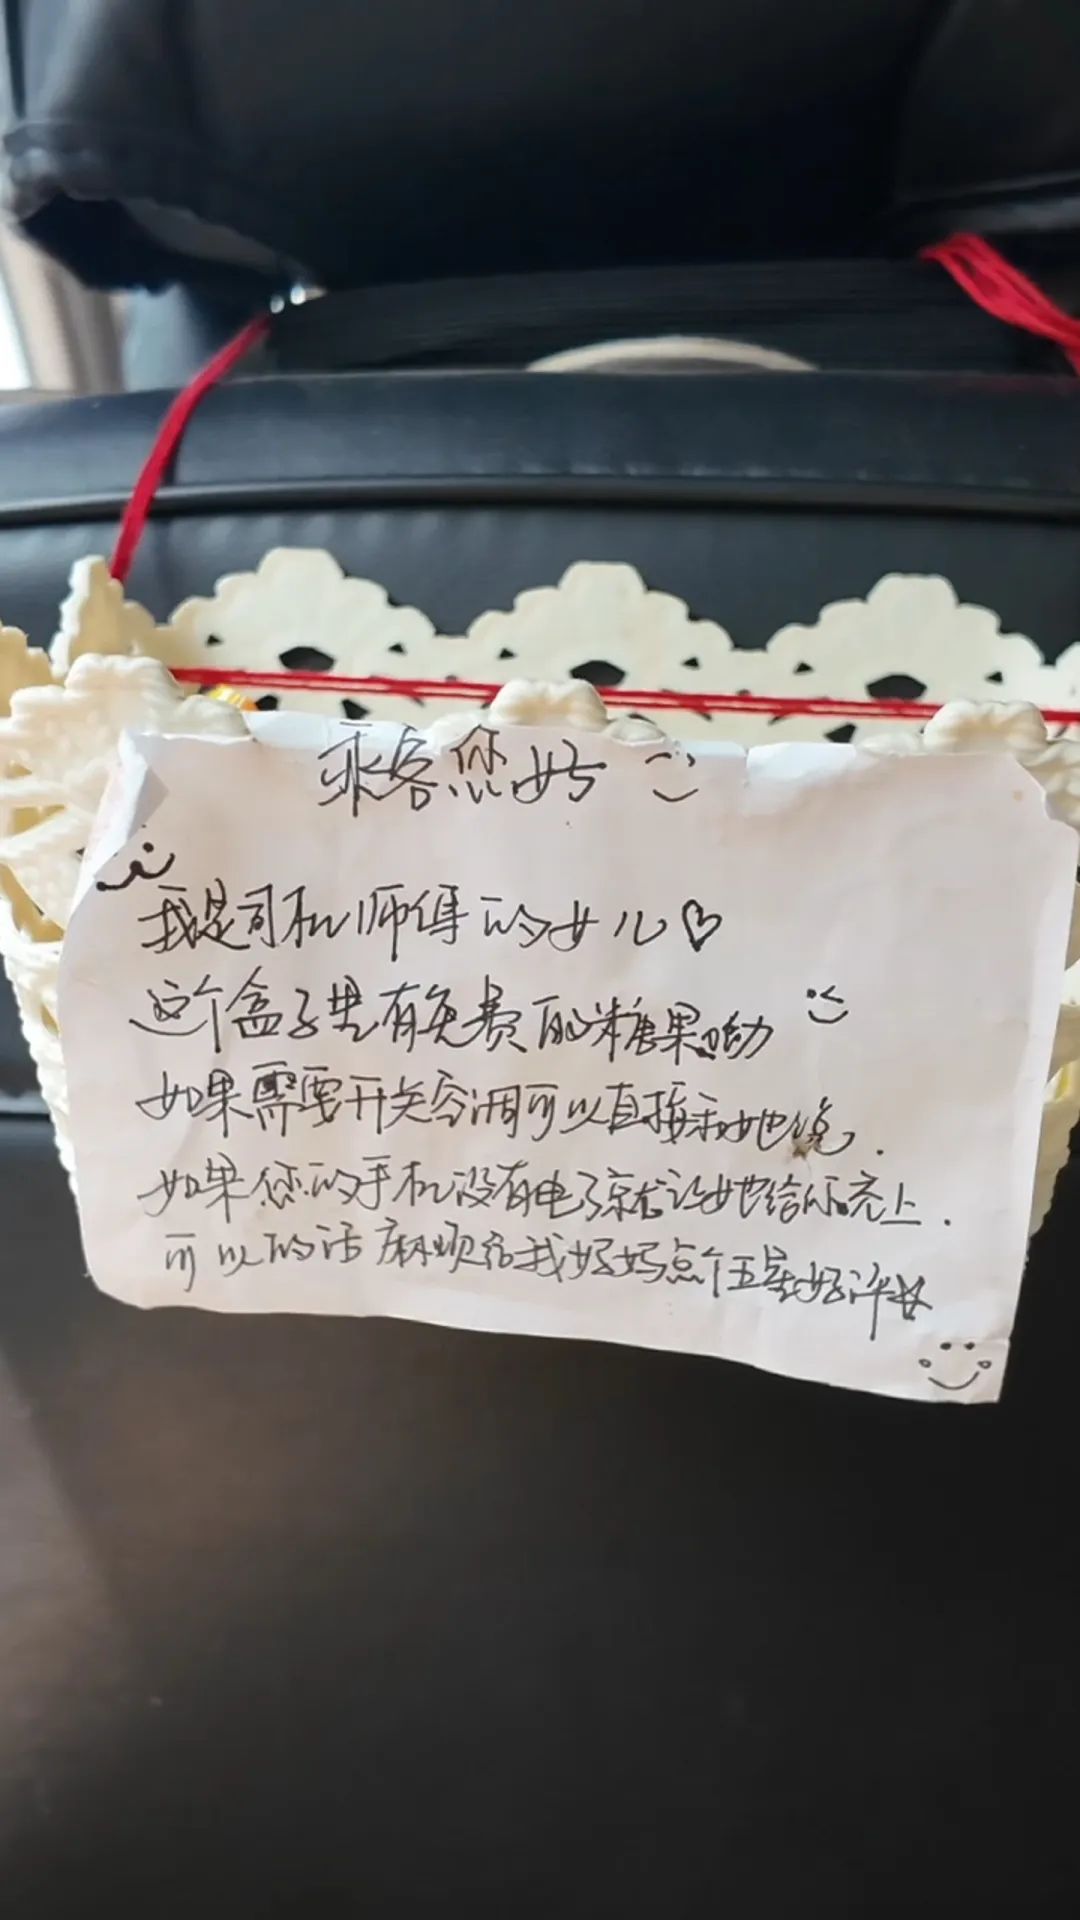 乘客您好
我是司机师傅的女儿♡
这个盒子里有免费的糖果呦
如果需要开关空调可以直接和她说.
如果您的手机没有电了就让她给你充上.
可以的话麻烦给我妈妈点个五星好评☆